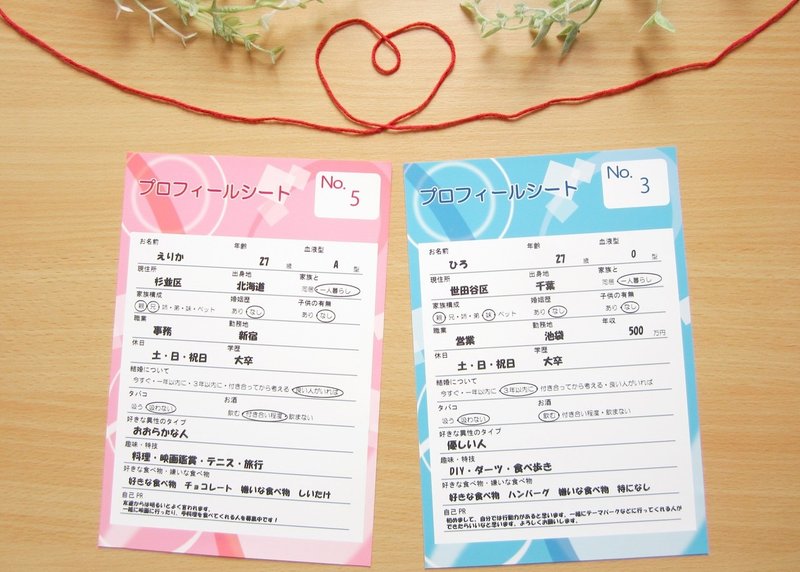 プロフィールシート
No. 5
お名前 年齢 血液型
えりか 27 歳 A 型
現住所 出身地 家族と
杉並区 北海道 同居・一人暮らし
家族構成 婚姻歴 子供の有無
親・兄・姉・弟・妹・ペット あり・なし あり・なし
職業 勤務地
事務 新宿
休日 学歴
土・日・祝日 大卒
結婚について
今すぐ・一年以内に・3年以内に・付き合ってから考える・良い人がいれば
タバコ お酒
吸う・吸わない 飲む・付き合い程度・飲まない
好きな異性のタイプ
おおらかな人
趣味・特技
料理・映画鑑賞・テニス・旅行
好きな食べ物・嫌いな食べ物
好きな食べ物 チョコレート 嫌いな食べ物 しいたけ
自己PR
友達からは明るいとよく言われます。
一緒に映画に行ったり、手料理を食べてくれる人を募集中です!
プロフィールシート
No. 3
お名前 年齢 血液型
ひろ 27 歳 O 型
現住所 出身地 家族と
世田谷区 千葉 同居・一人暮らし
家族構成 婚姻歴 子供の有無
親・兄・姉・弟・妹・ペット あり・なし あり・なし
職業 勤務地 年収
営業 池袋 500 万円
休日 学歴
土・日・祝日 大卒
結婚について
今すぐ・一年以内に・3年以内に・付き合ってから考える・良い人がいれば
タバコ お酒
吸う・吸わない 飲む・付き合い程度・飲まない
好きな異性のタイプ
優しい人
趣味・特技
DIY・ダーツ・食べ歩き
好きな食べ物・嫌いな食べ物
好きな食べ物 ハンバーグ 嫌いな食べ物 特になし
自己PR
初めまして、自分では行動力があると思います。一緒にテーマパークなどに行ってくれる人が
できたらいいなと思います。よろしくお願いします。